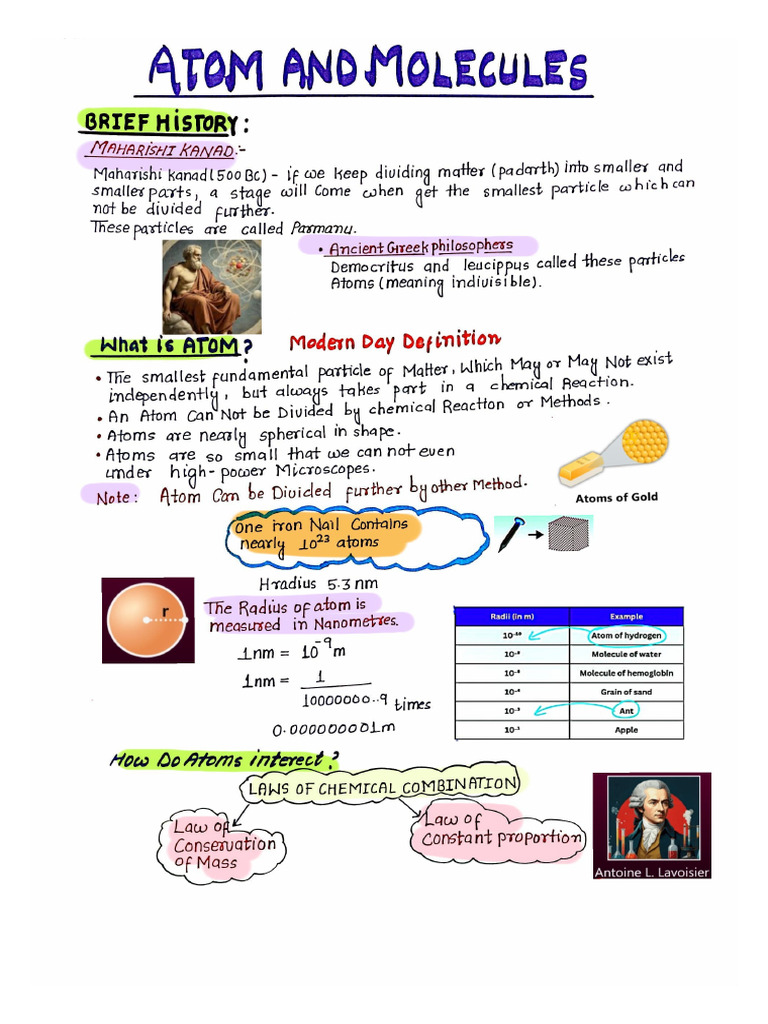 ATOM AND MOLECULES
BRIEF HISTORY:
MAHARISHI KANAD:-
Maharishi kanad (500 BC) - if we keep dividing matter (padarth) into smaller and
smaller parts, a stage will come when get the smallest particle which can
not be divided further.
These particles are called Parmanu.
• Ancient Greek philosophers
Democritus and leucippus called these particles
Atoms (meaning indivisible).
What is ATOM? Modern Day Definition
• The smallest fundamental particle of Matter, Which May or May Not exist
independently, but always takes part in a chemical Reaction.
• An Atom Can Not be Divided by chemical Reaction or Methods.
• Atoms are nearly spherical in shape.
• Atoms are so small that we can not even
under high-power Microscopes.
Note: Atom Can be Divided further by other Method.
Atoms of Gold
One iron Nail Contains
nearly 10²³ atoms
H radius 5.3 nm
r
The Radius of atom is
measured in Nanometres.
1nm = 10⁻⁹ m
1nm = 1
10000000..9 times
0.000000001m
Radii (in m) Example
10⁻¹⁰ Atom of hydrogen
10⁻⁹ Molecule of water
10⁻⁸ Molecule of hemoglobin
10⁻⁴ Grain of sand
10⁻³ Ant
10⁻¹ Apple
How Do Atoms interect?
LAWS OF CHEMICAL COMBINATION
Law of
Conservation
of Mass
Law of
Constant proportion
Antoine L. Lavoisier